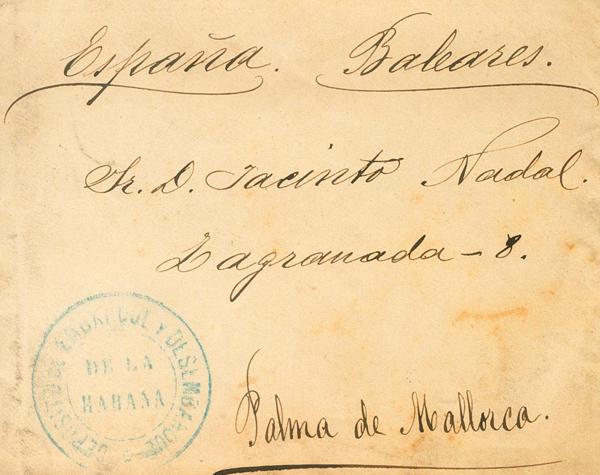 España. Baleares.
Sr. D. Jacinto Nadal.
Zagranada - 8.
Palma de Mallorca.
DEPOSITO DE EMBARQUE Y DESEMBARQUE
DE LA
HABANA